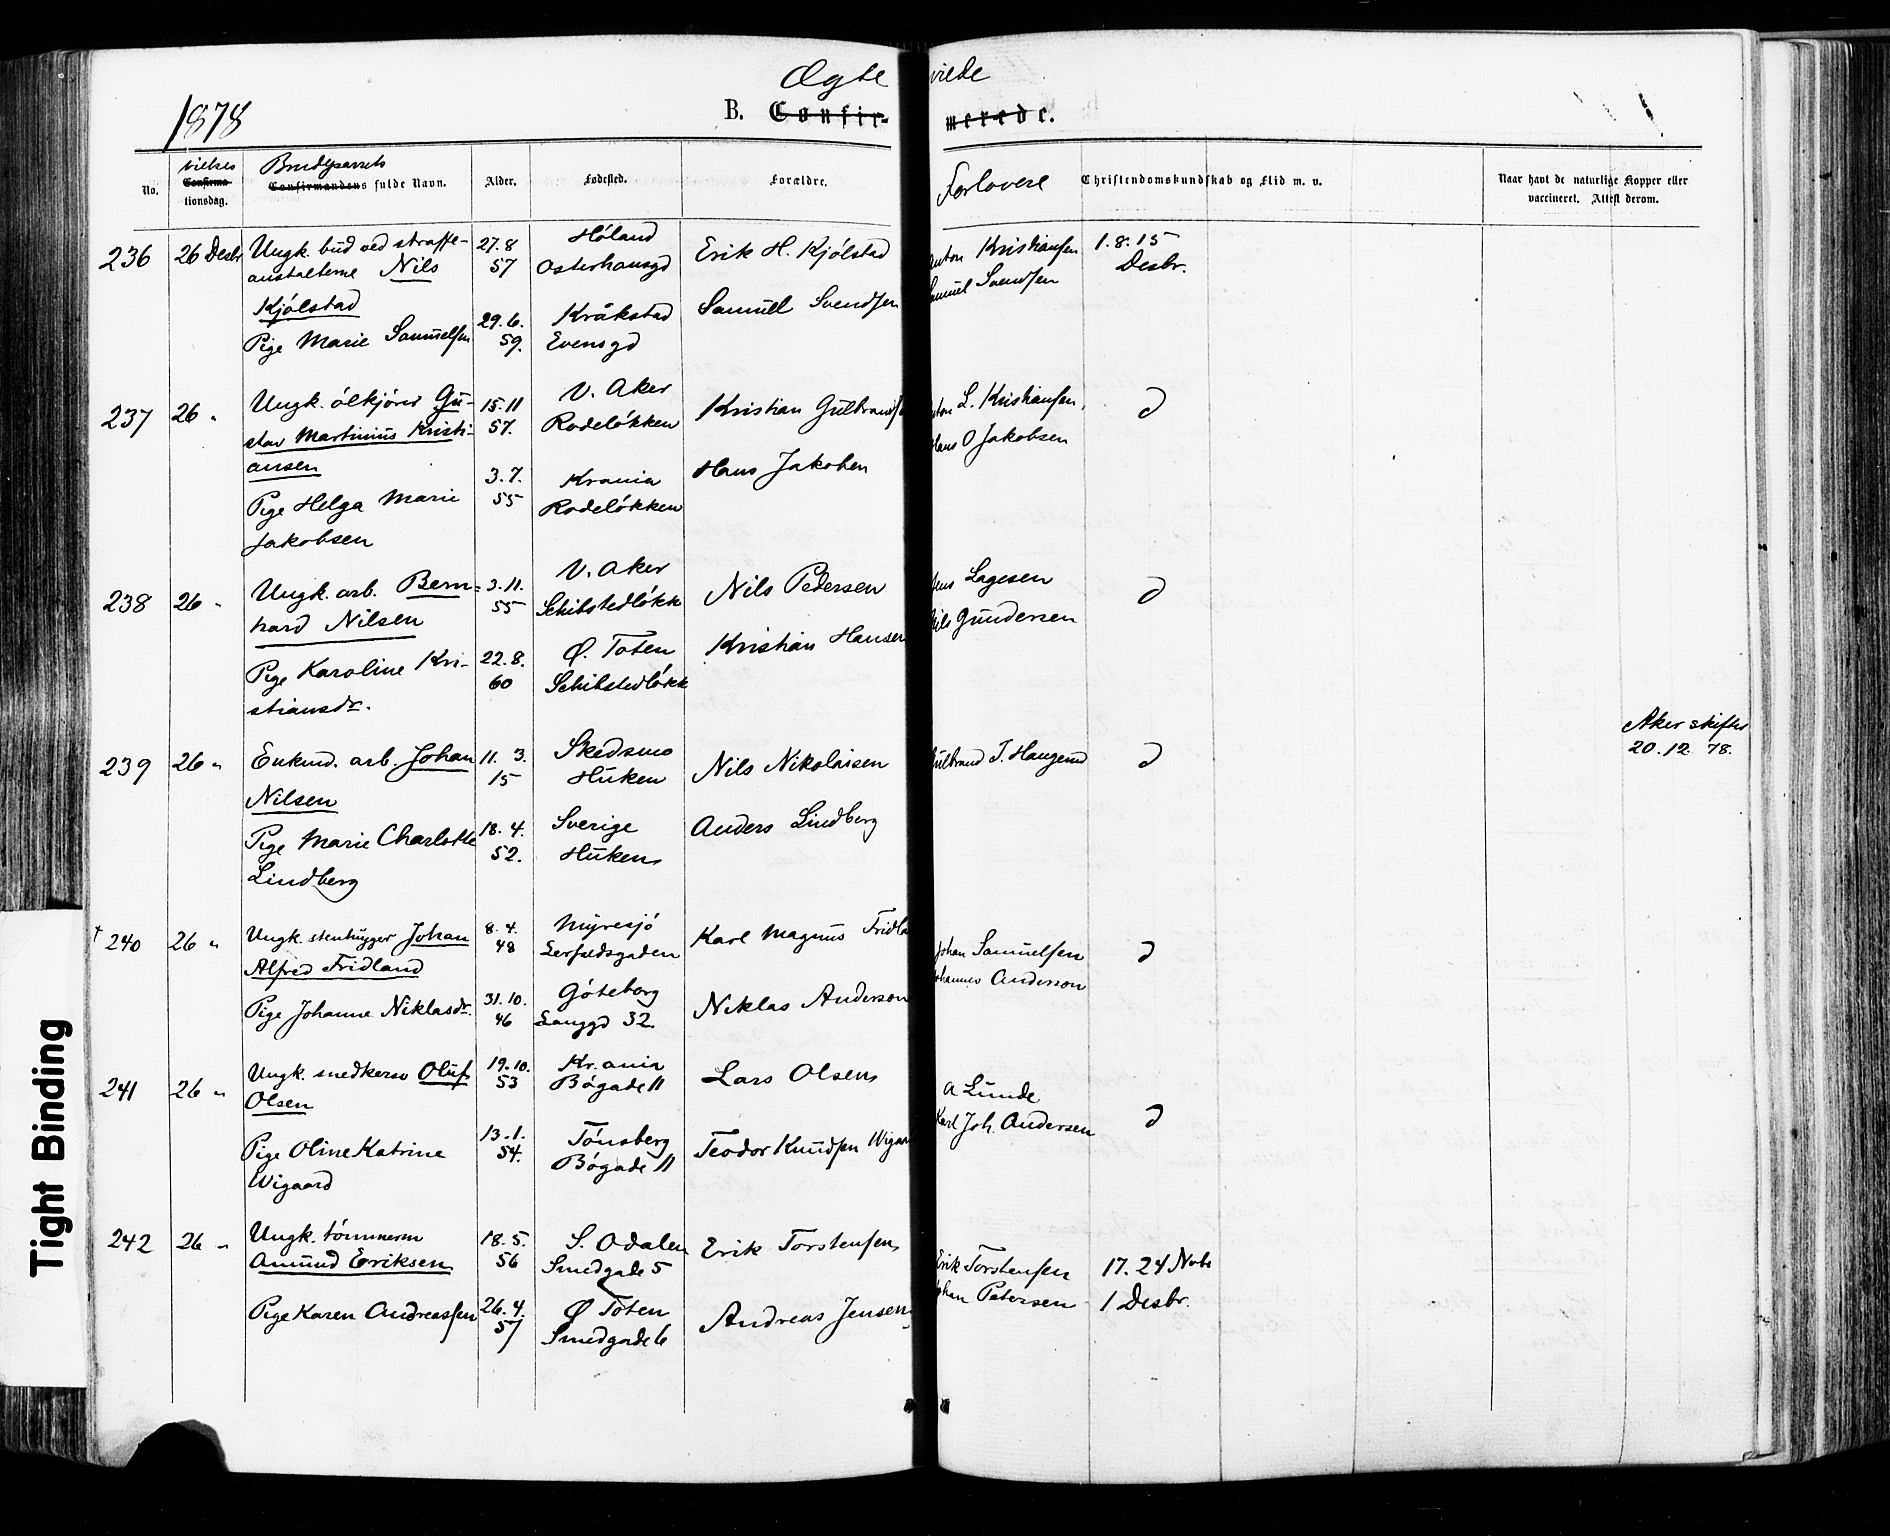 Ægte vilde
1878
B. Confirmerede.
No.
vielses
Confirma
tionsdag.
Brudeparrets
Confirmandens fulde Navn.
Alder.
Fødested.
Forældre.
Forlovere
Christendomskundskab og Flid m. v.
Naar havt de naturlige Kopper eller
vaccineret. Attest derom.
236 26 Desbr
Ungk. bud ved straffe-
anstalterne Nils
Kjólstad
Pige Marie Samuelsen
27.8
57
29.6.
59.
Hóland
Osterhausgd
Kråkstad
Evensgd
Erik H. Kjólstad
Samuel Svendsen
Anton Kristiansen
Samuel Svendsen
1. 8. 15
Desbr.
237 26 "
Ungk. ólkjórer Gu-
stav Martinius Kristi-
ansen
Pige Helga Marie
Jakobsen
15.11
57.
3.7.
55
V. Aker
Rodelókken
Krania
Rodelókken
Kristian Gulbrands
Hans Jakobsen
nton L. Kristiansen,
Hans O Jakobsen
D
238 26 "
Ungk. arb. Bern-
hard Nilsen
Pige Karoline Kri-
stiansdr.
3.11.
55
22.8.
60
V. Aker
Schibstedlókk
Ø. Toten
Schibstedlókk
Nils Pedersen
Kristian Hansen
Jens Lagesen
Nils Gundersen
D
239 26 "
Enkmd. arb. Johan
Nilsen
Pige Marie Charlotte
Lindberg
11. 3.
15
18. 4.
52.
Skedsmo
Huken
Sverige
Huken
Nils Nikolaisen
Anders Lindberg
Gulbrand J. Haugerud
D
Aker skifter
20.12.78.
† 240 26 "
Ungk. stenhugger Johan
Alfred Fridland
Pige Johanne Niklasdr.
8. 4.
48
31.10.
46
Myresjó
Lerfaldsgaden
Góteborg
Langgd 32.
Karl Magnus Fridla
Niklas Anderson
Johan Samuelsen
Johannes Anderson
D
241 26 "
Ungk. snedkersv Oluf
Olsen
Pige Oline Katrine
Wigaard
19.10.
53
13.1.
54.
Kr.ania
Bógade 11
Tónsberg
Bógade 11
Lars Olsen
Teodor Knudsen Wigaa
A Lunde
Karl Joh. Andersen
D
242 26 "
Ungk. tómmerm
Amund Eriksen
Pige Karen Andreassen
18. 5.
56
26. 4.
57
S. Odalen
Smedgade 5
Ø Toten
Smedgade 6
Erik Torstensen
Andreas Jensen
Erik Torstensen
Johan Petersen
17. 24 Nvbr
1 Desbr.
Tight Binding